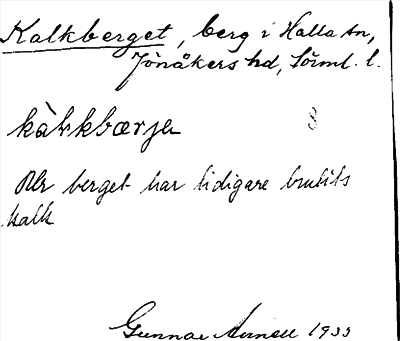 Kalkberget, berg i Halla sn,
Jönåkers hd, Sörml. l.
kàlkbærjə
Ur berget har tidigare brutits
kalk
Gunnar 1933